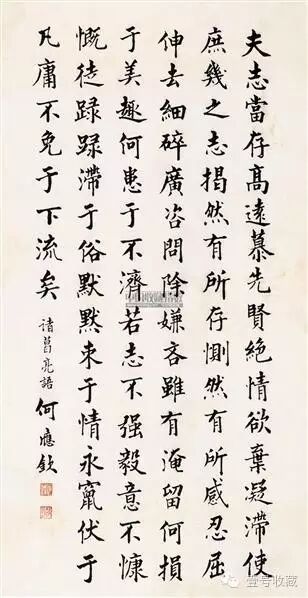 夫志當存高遠慕先賢絕情欲棄凝滯使
庶幾之志揭然有所存惻然有所感忍屈
伸去細碎廣咨問除嫌吝雖有淹留何損
于美趣何患于不濟若志不强毅意不慷
慨徒碌碌滯于俗默默束于情永竄伏于
凡庸不免于下流矣
諸葛亮語 何應欽
壹号收藏